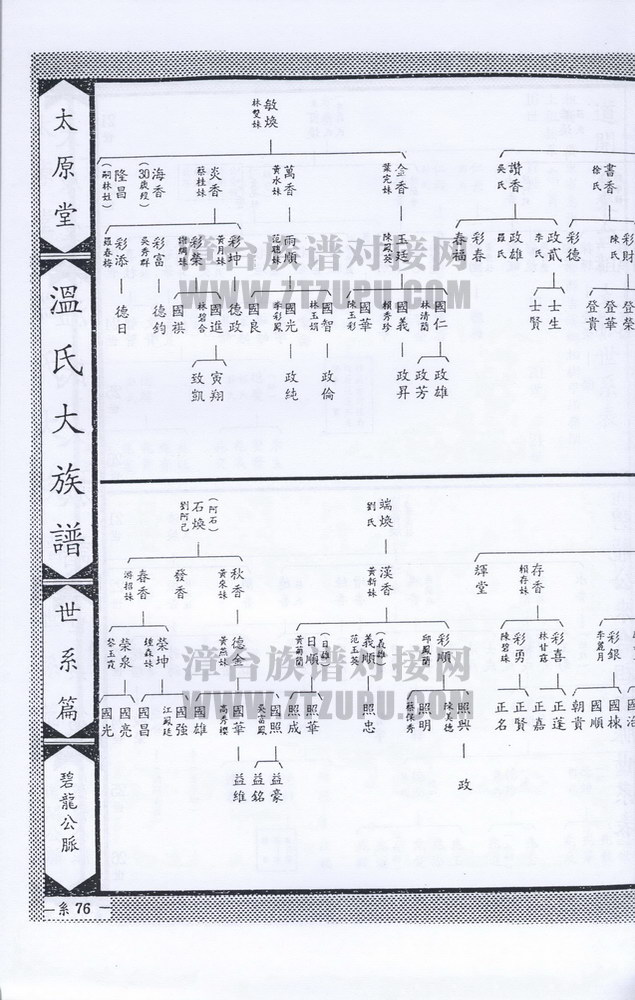 太原堂
溫氏大族譜
世系篇
碧龍公脈
系 76
敏煥
林雙妹
書香
徐氏
讚香
吳氏
金香
葉定妹
萬香
黃水妹
炎香
蔡桂妹
海香
(30歲歿)
隆昌
(嗣林姓)
彩財
陳氏
彩德
政貳
李氏
政雄
羅氏
彩春
春福
玉廷
陳鳳英
雨順
范聰妹
彩坤
黃月妹
彩榮
彩富
吳秀群
彩添
羅春梅
登榮
登華
登貴
士生
士賢
國仁
林清蘭
國義
賴秀珍
國華
陳玉彩
國智
林玉娟
國光
李彩鳳
國良
德政
國進
林碧合
國祺
德鈞
德日
政雄
政芳
政昇
政倫
政純
寅翔
致凱
端煥
劉氏
(阿石)
石煥
劉阿己
存香
賴存妹
輝堂
漢香
黃新妹
秋香
黃泉妹
發香
春香
游招妹
彩銀
李麗月
彩喜
林甘露
彩勇
陳碧珠
彩順
邱鳳蘭
(義雄)
義順
范玉英
(日雄)
日順
黃菊蘭
德金
黃燕妹
榮坤
鍾森妹
榮泉
黎玉霞
國棟
國順
朝貴
正蓬
正嘉
正賢
正名
照興
陳美德
照明
蔡保秀
照忠
照華
照成
國照
吳富鳳
國華
高秀櫻
國雄
國強
江鳳廷
國昌
國亮
國光
政
益豪
益銘
益維
漳台族谱对接网
WWW.ZTZUPU.COM
漳台族谱对接网
WWW.ZTZUPU.COM